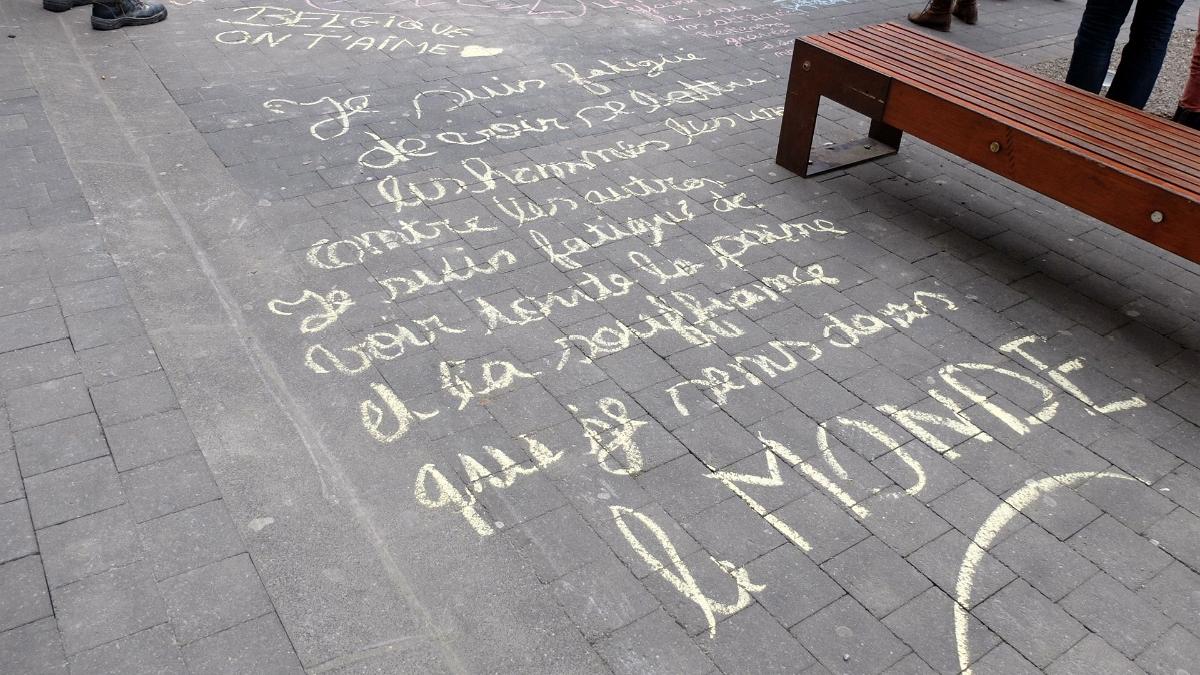 BELGIQUE
ON T'AIME
Je suis fatigué
de voir se battre
les hommes les uns
contre les autres
Je suis fatigué de
voir toute la peine
et la souffrance
que je sens dans
le MONDE